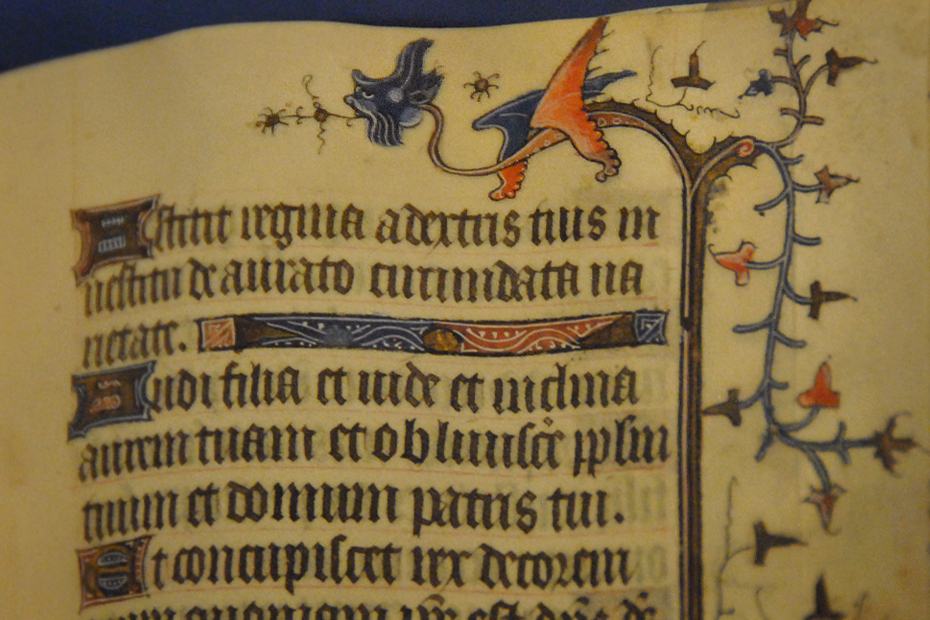 Astitit regina a dextris tuis in
uestitu de aurato circumdata ua
rietate.
Audi filia et uide et inclina
aurem tuam et obliuiscere pplm
tuum et domum patris tui.
Et concupiscet rex decorem